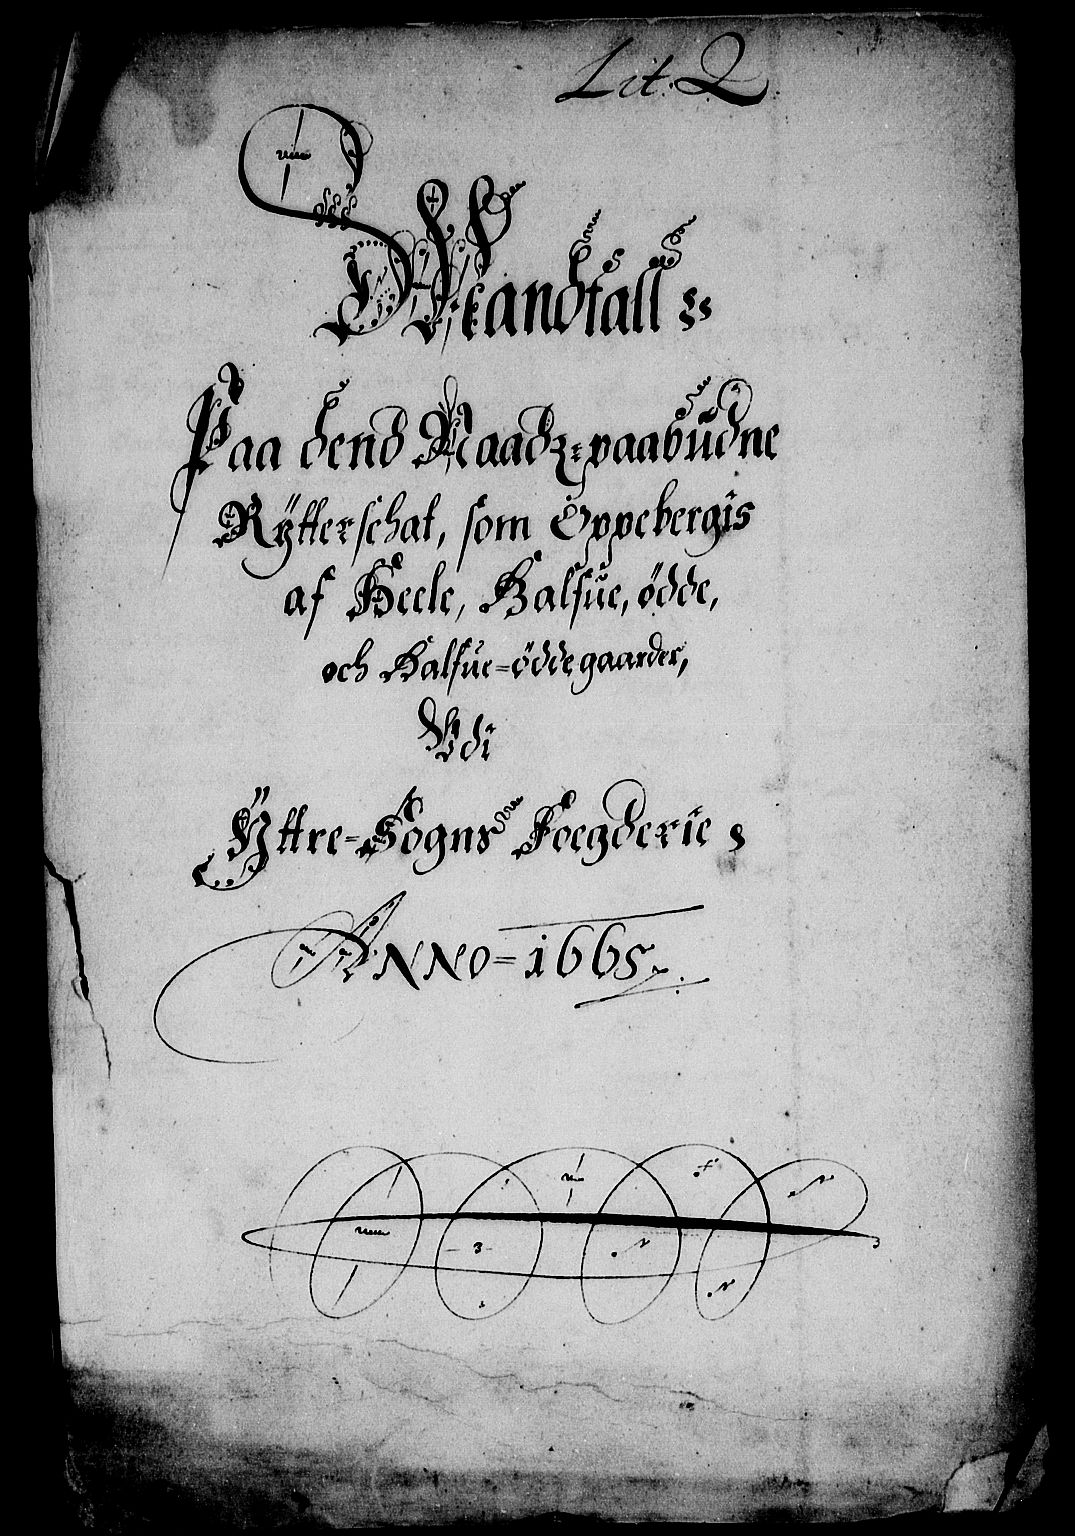 Lit: Q.
Mandtall
Paa dend Naadz-paabüdne
Rÿtterschat, som Oppebergis
af Heele, Halfüe, ödde,
och Halfüe-öddegaarder,
Udi
Ÿttre-Sogns Foegderie
ANNO-1665.